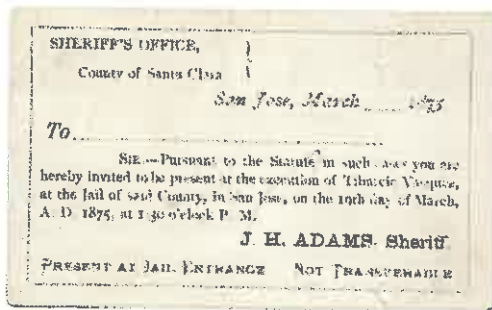 SHERIFF'S OFFICE,
County of Santa Clara
San Jose, March ...... 1875
To
SIR.—Pursuant to the Statute in such cases you are
hereby invited to be present at the execution of Tiburcio Vasquez,
at the Jail of said County, in San Jose, on the 19th day of March,
A. D. 1875, at 1:30 o'clock P. M.
J. H. ADAMS. Sheriff.
PRESENT AT JAIL ENTRANCE NOT TRANSFERABLE